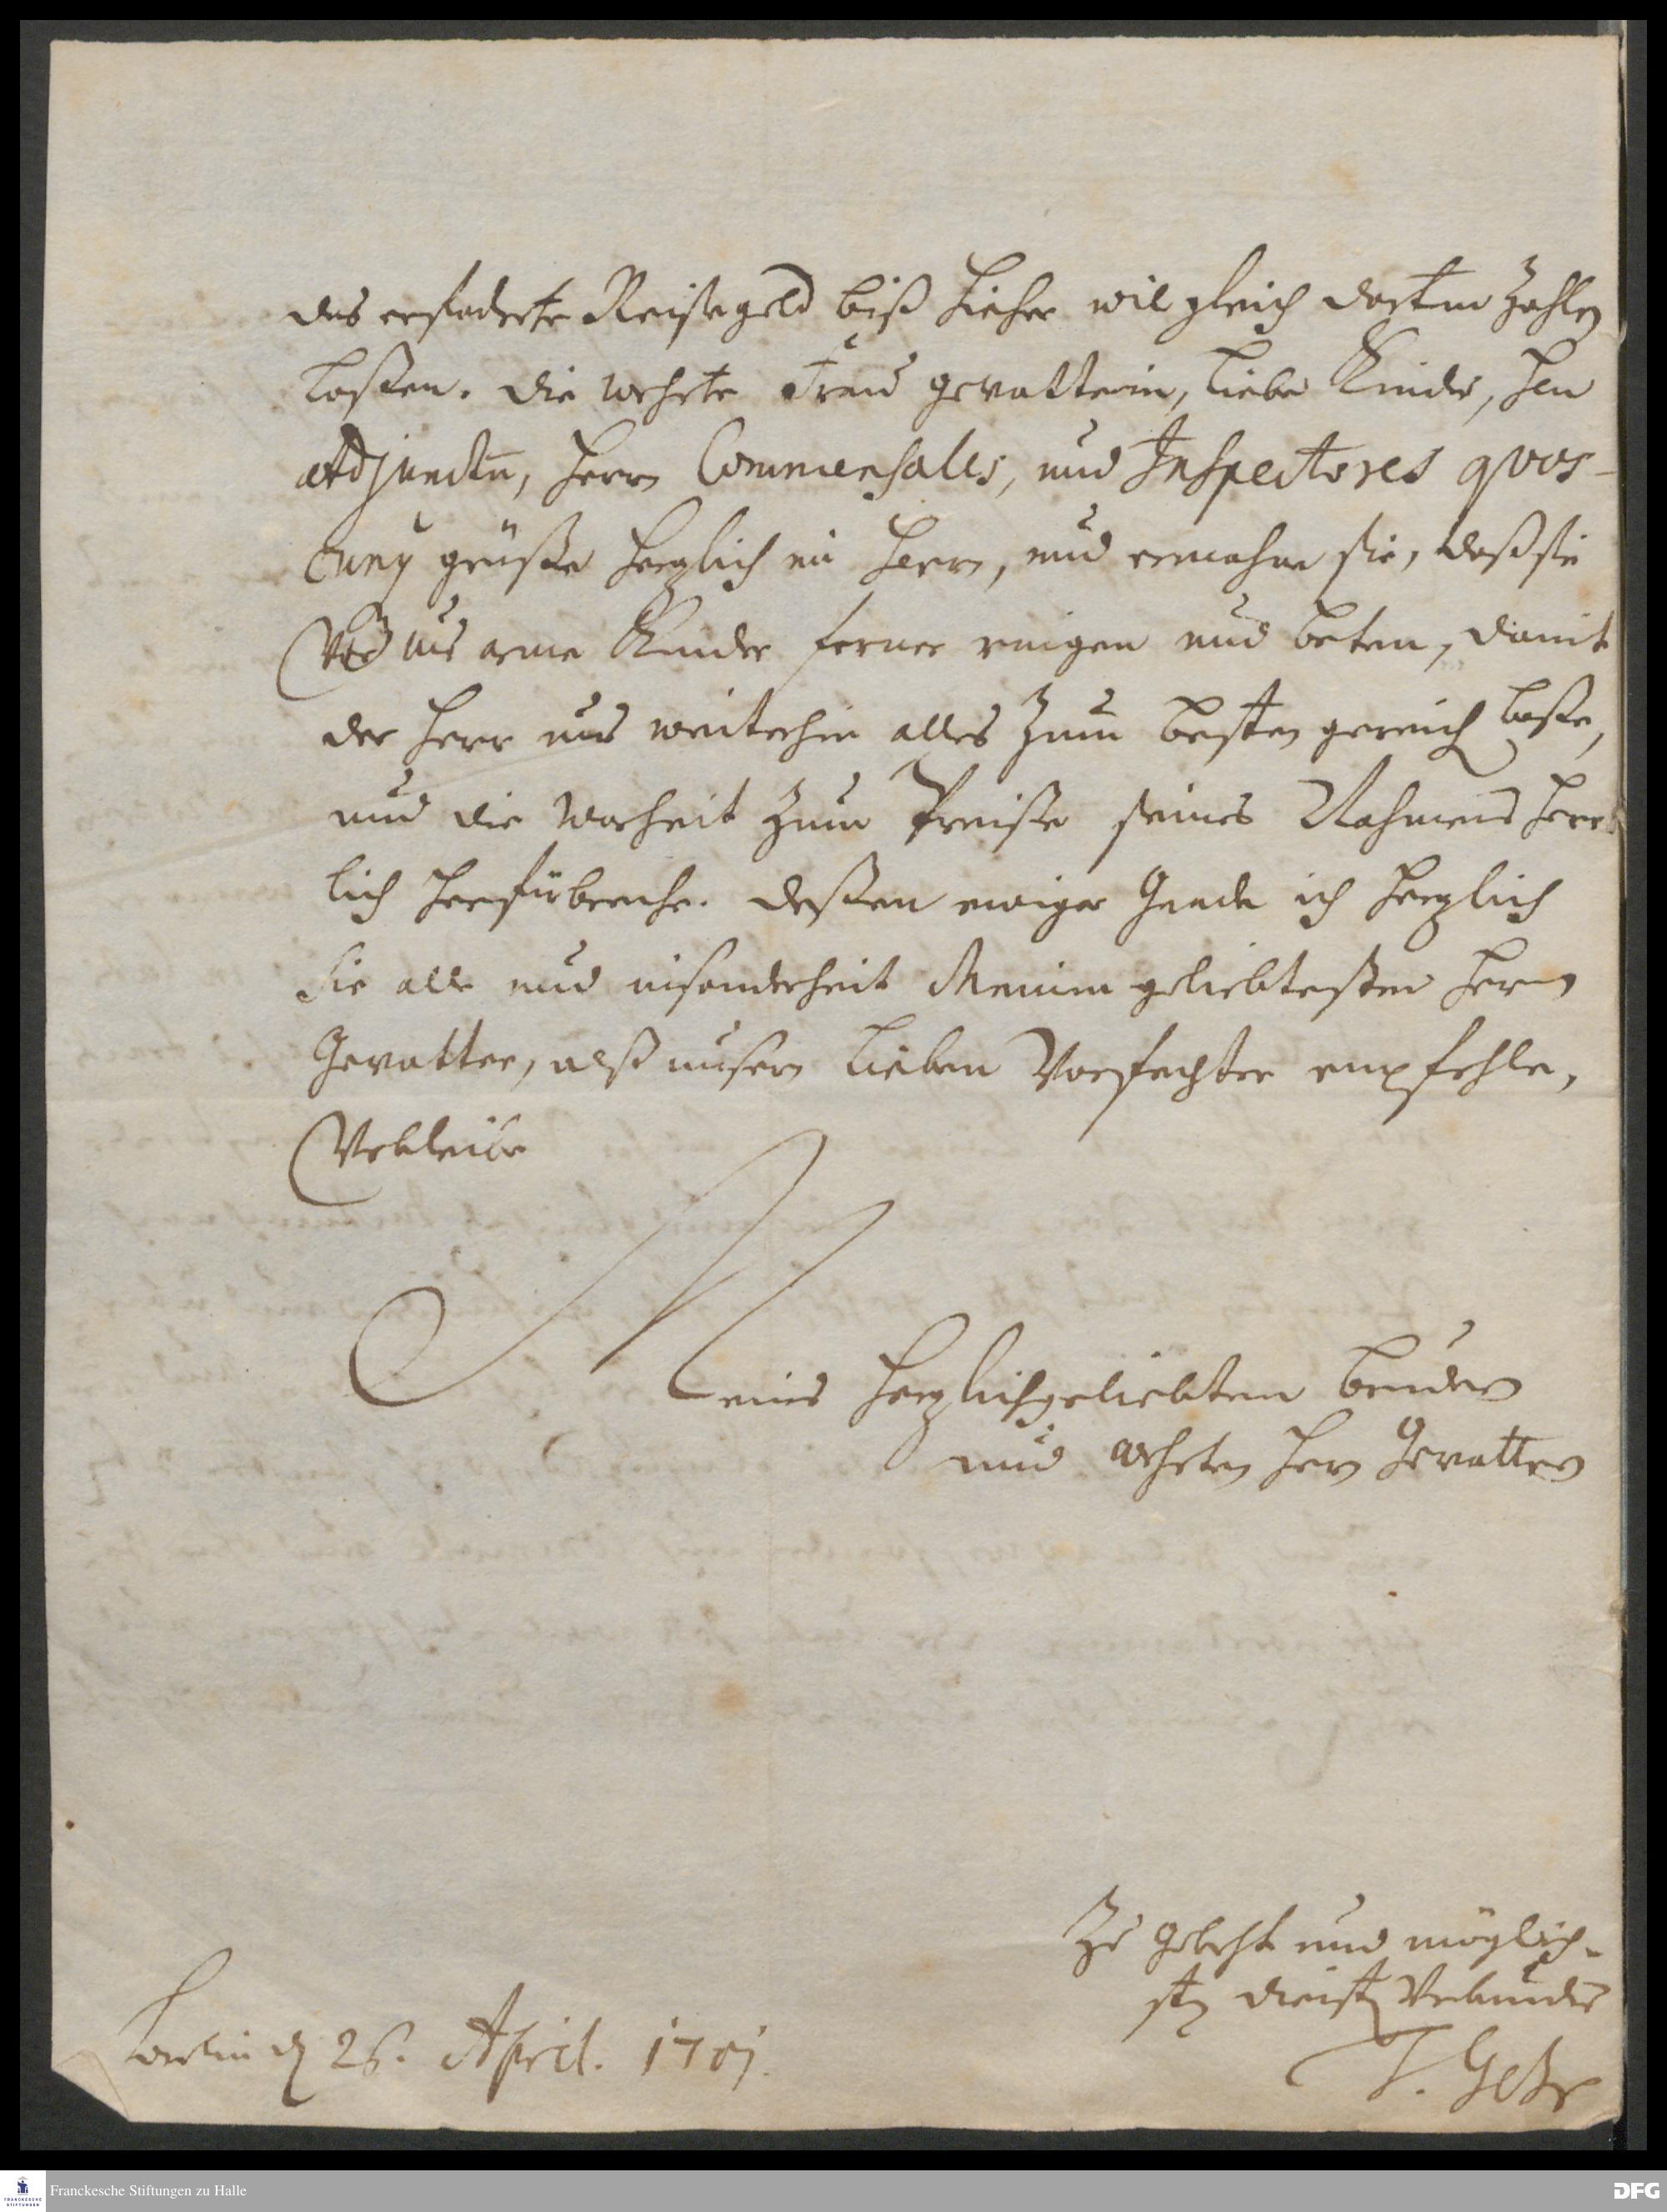 das erfoderte Reisegeld biß hieher wil gleich dorten zahlen
laßen. Die wehrte Frau gevatterin, liebe Kinder, Hen
Adjunctū, Herrn Commensales, und Inspectores quos-
cunq grüße herzlich im Herrn, und ermahne sie, daß sie
vor uns arme Kinder ferner ringen und beten, damit
der Herr uns weiterhin alles zum besten gereich laße,
und die Warheit zum Preise seines Nahmens herr
lich herfürbreche. Deßen ewiger Gnade ich herzlich
Sie alle und insonderheit Meinen geliebtesten Herrn
Gevatter, alß unsern lieben Vorfechter empfehle,
Verbleibe
Meines herzlichgeliebten bruders
und wehrten Hern Gevattern
Zu Gebeht und möglich-
sten dienst Verbundner
T. Gehr
Berlin d 26. April. 1701.
Franckesche Stiftungen zu Halle
DFG